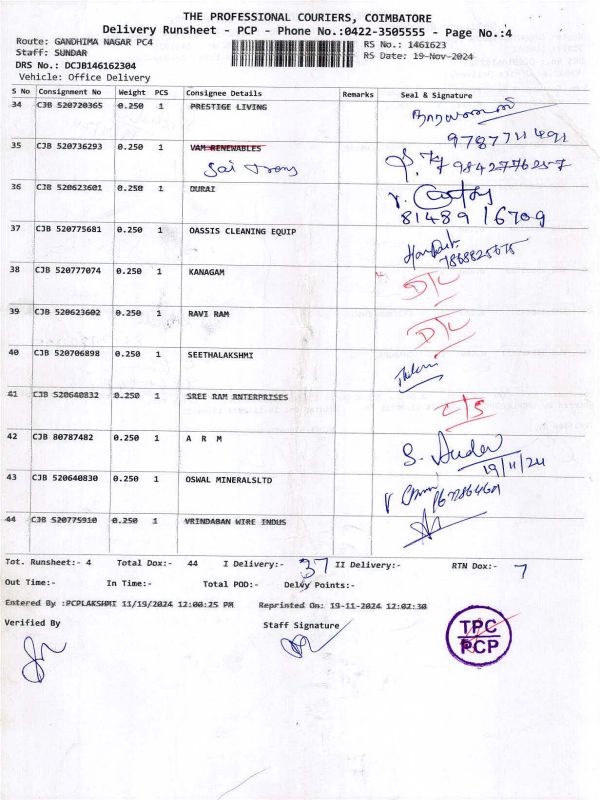 THE PROFESSIONAL COURIERS, COIMBATORE
Delivery Runsheet - PCP - Phone No.:0422-3505555 - Page No.:4
Route: GANDHIMA NAGAR PC4 RS No.: 1461623
Staff: SUNDAR RS Date: 19-Nov-2024
DRS No.: DCJB146162304
Vehicle: Office Delivery
S No Consignment No Weight PCS Consignee Details Remarks Seal & Signature
34 CJB 520720365 0.250 1 PRESTIGE LIVING
9787711491
35 CJB 520736293 0.250 1 VAM RENEWABLES
Sai Trans 9842776257
36 CJB 520623601 0.250 1 DURAI
81489 16709
37 CJB 520775681 0.250 1 OASSIS CLEANING EQUIP
7868825675
38 CJB 520777074 0.250 1 KANAGAM D/L
39 CJB 520623602 0.250 1 RAVI RAM D/L
40 CJB 520706898 0.250 1 SEETHALAKSHMI
41 CJB 520640832 0.250 1 SREE RAM RNTERPRISES C/S
42 CJB 80787482 0.250 1 A R M
19/11/24
43 CJB 520640830 0.250 1 OSWAL MINERALSLTD
44 CJB 520775910 0.250 1 VRINDABAN WIRE INDUS
Tot. Runsheet:- 4 Total Dox:- 44 I Delivery:- 37 II Delivery:- RTN Dox:- 7
Out Time:- In Time:- Total POD:- Delvy Points:-
Entered By :PCPLAKSHMI 11/19/2024 12:00:25 PM Reprinted On: 19-11-2024 12:02:30
Verified By Staff Signature
TPC
PCP